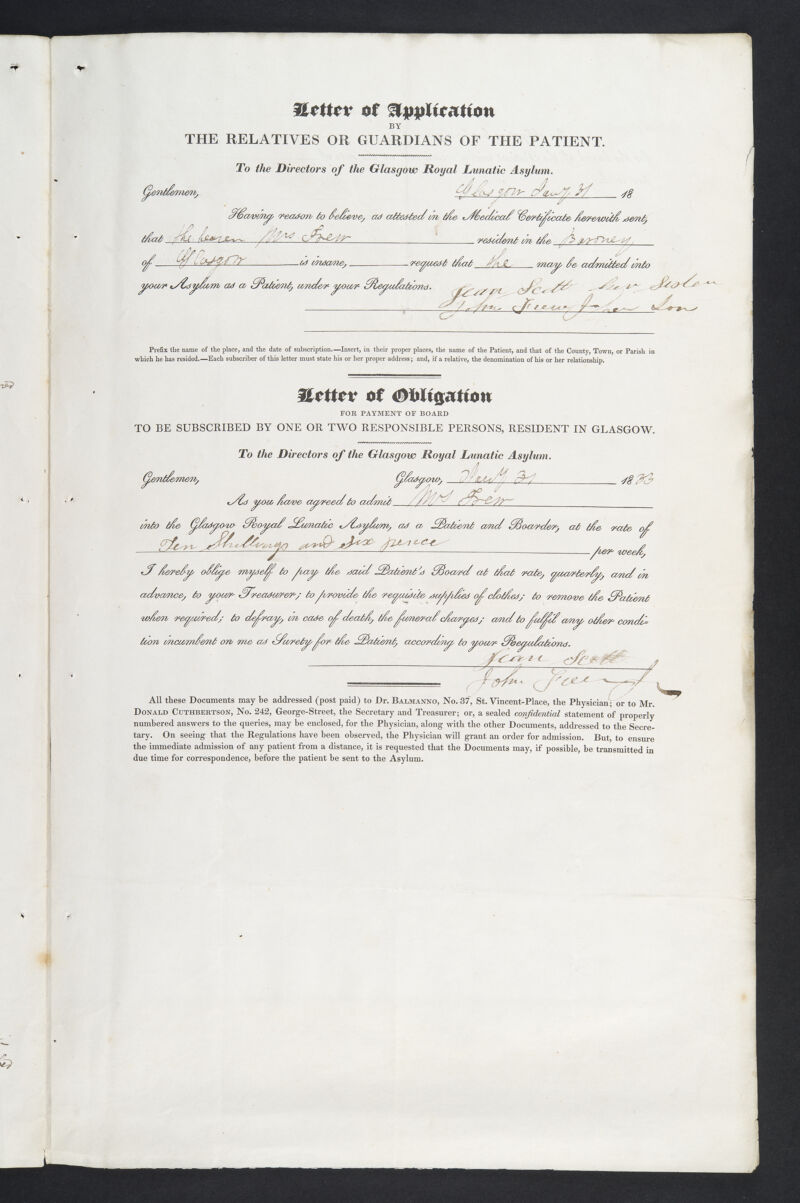 Letter of Application
BY
THE RELATIVES OR GUARDIANS OF THE PATIENT.
To the Directors of the Glasgow Royal Lunatic Asylum.
Gentlemen, Glasgow Jany 31 18
Having reason to believe, as attested in the Medical Certificate herewith sent,
that the bearer Mrs Frew resident in the Baroney
of Glasgow is insane, request that she may be admitted into
your Asylum as a Patient, under your Regulations. Jean Scott her Sister
John Frew her Son
Prefix the name of the place, and the date of subscription.—Insert, in their proper places, the name of the Patient, and that of the County, Town, or Parish in
which he has resided.—Each subscriber of this letter must state his or her proper address; and, if a relative, the denomination of his or her relationship.
Letter of Obligation
FOR PAYMENT OF BOARD
TO BE SUBSCRIBED BY ONE OR TWO RESPONSIBLE PERSONS, RESIDENT IN GLASGOW.
To the Directors of the Glasgow Royal Lunatic Asylum.
Gentlemen, Glasgow, Jany 31 1833
As you have agreed to admit Mrs Frew
into the Glasgow Royal Lunatic Asylum, as a Patient and Boarder, at the rate of
Ten Shillings and Six pence per week,
I hereby oblige myself to pay the said Patient's Board at that rate, quarterly, and in
advance, to your Treasurer; to provide the requisite supplies of clothes; to remove the Patient
when required; to defray, in case of death, the funeral charges; and to fulfil any other condi-
tion incumbent on me as Surety for the Patient, according to your Regulations.
Jean Scott
John Frew
All these Documents may be addressed (post paid) to Dr. BALMANNO, No. 37, St. Vincent-Place, the Physician; or to Mr.
DONALD CUTHBERTSON, No. 242, George-Street, the Secretary and Treasurer; or, a sealed confidential statement of properly
numbered answers to the queries, may be enclosed, for the Physician, along with the other Documents, addressed to the Secre-
tary. On seeing that the Regulations have been observed, the Physician will grant an order for admission. But, to ensure
the immediate admission of any patient from a distance, it is requested that the Documents may, if possible, be transmitted in
due time for correspondence, before the patient be sent to the Asylum.